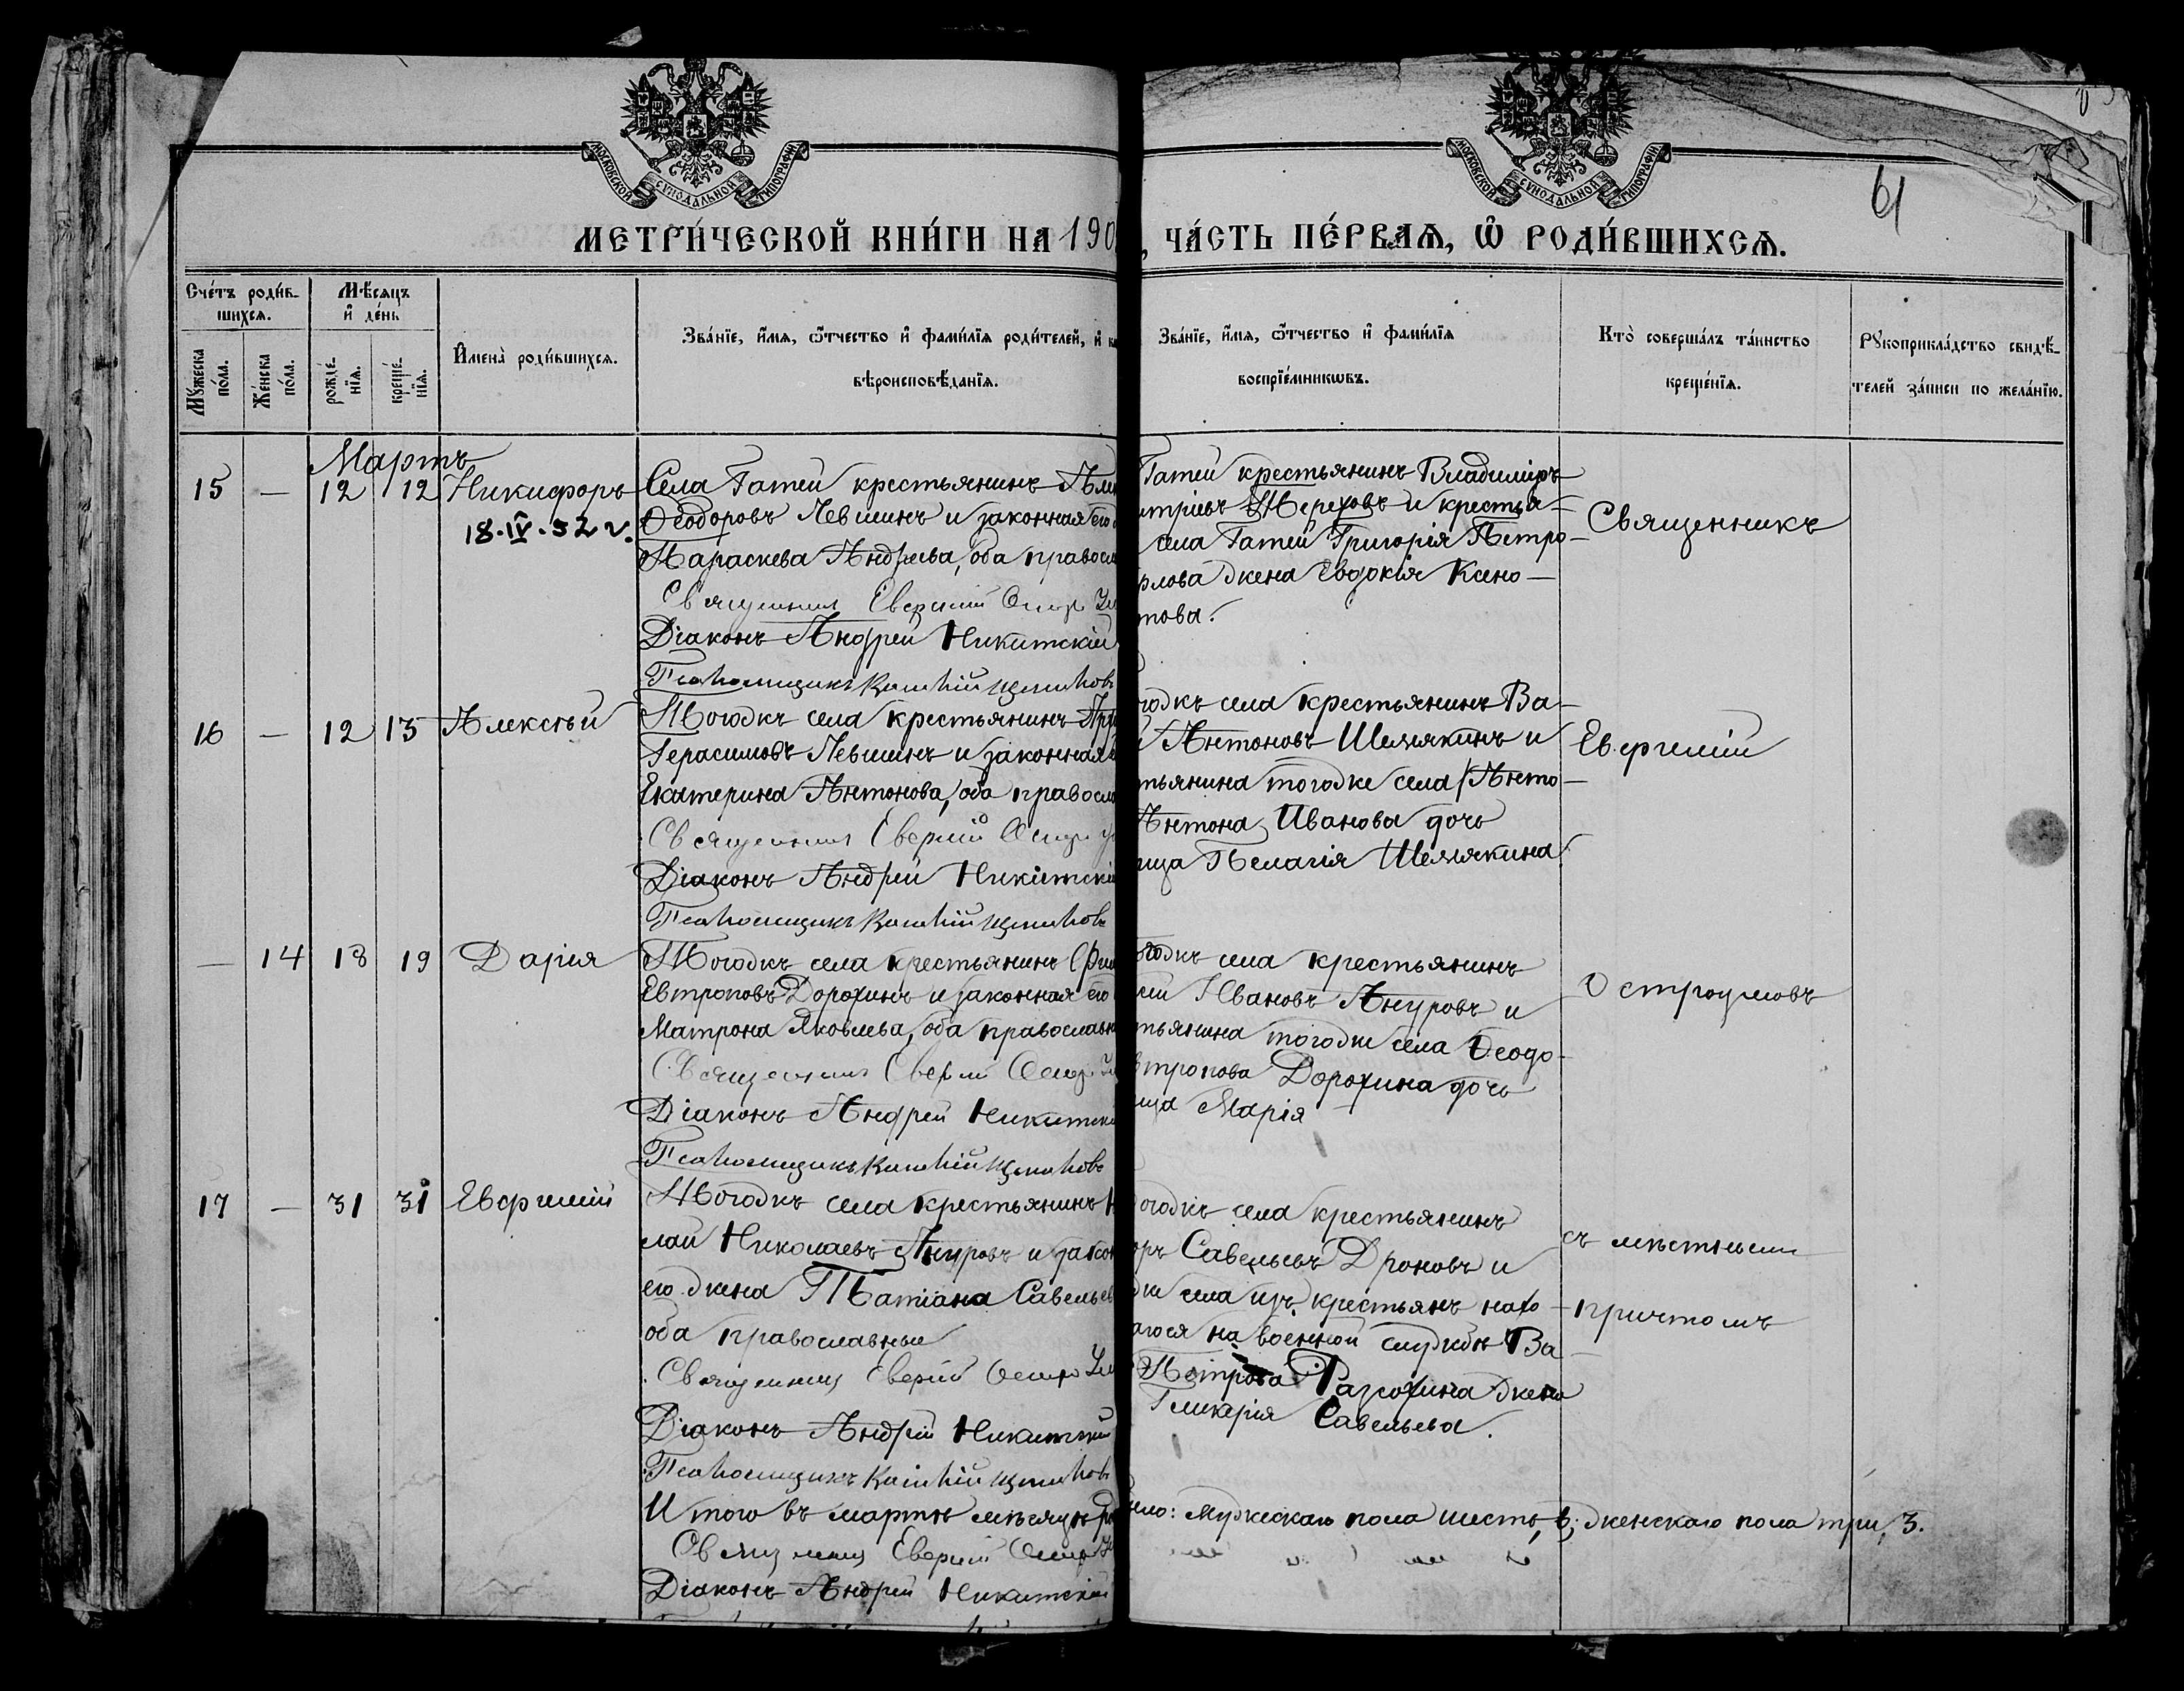 МОСКОВСКОЙ СѴНОДАЛЬНОЙ ТИПОГРАФІИ
МОСКОВСКОЙ СѴНОДАЛЬНОЙ ТИПОГРАФІИ
61
МЕТРИ́ЧЕСКОЙ КНИ́ГИ НА 190
, ЧА́СТЬ ПЕ́РВАѦ, Ѡ҆ РОДИ́ВШИХСѦ.
Сче́тъ роди́в-
шихсѧ.
Мѣ́сѧцъ
и҆ де́нь
Мꙋ́жеска
по́ла.
Же́нска
по́ла.
рожде́-
нїѧ.
креще́-
нїѧ.
И҆мена̀ роди́вшихсѧ.
Зва́нїе, и҆́мѧ, ѻ҆́тчество и҆ фами́лїѧ роди́телей, и҆
вѣроисповѣ́данїѧ.
Зва́нїе, и҆́мѧ, ѻ҆́тчество и҆ фами́лїѧ
воспрїе́мникѡвъ.
Кто̀ соверша́лъ та́инство
креще́нїѧ.
Рꙋкоприкла́дство свидѣ́-
телей за́писи по жела́нїю.
Мартъ
15 — 12 12 Никифоръ
18.IV.52 г.
Села Гатей крестьянинъ
Ѳеодоровъ Левшинъ и законная его
Параскева Андреева, оба правосла
Священникъ Евфимій Остроум
Діаконъ Андрей Никитскій
Псаломщикъ
Гатей крестьянинъ Владиміръ
итріевъ Тереховъ и крестья-
села Гатей Григорія Петро-
рлова жена Евдокія Ксено-
това.
Священникъ
16 — 12 13 Алексѣй
Тогожъ села крестьянинъ
Герасимовъ Левшинъ и законная
Екатерина Антонова, оба правосла
Священникъ Евфимій Остроу
Діаконъ Андрей Никитскій
Псаломщикъ
гожъ села крестьянинъ Ва-
й Антоновъ Шемякинъ и
тьянина тогоже села Анто-
Антона Иванова дочь
ица Пелагія Шемякина.
Евфимій
— 14 18 19 Дарія
Тогожъ села крестьянинъ Фил
Евтроповъ Дорохинъ и законная его
Матрона Яковлева, оба православн
Священникъ Евфимій Остроу
Діаконъ Андрей Никитскі
Псаломщикъ
огожъ села крестьянинъ
сій Ивановъ Ануровъ и
тьянина тогоже села Ѳеодо-
втропова Дорохина дочь
ица Марія
Остроумовъ
17 — 31 31 Евфимій
Тогожъ села крестьянинъ Н
лай Николаевъ Ануровъ и закон
его жена Татіана Савельев
оба православные
Священникъ Евфимій Остроум
Діаконъ Андрей Никитскій
Псаломщикъ
огожъ села крестьянинъ
оръ Савельевъ Дроновъ и
же села изъ крестьянъ нахо-
агося на военной службѣ Ва-
Петрова Разсохина жена
Гликерія Савельева.
съ мѣстнымъ
причтомъ
Итого въ мартѣ мѣсяцѣ ро
ило: мужескаго пола шесть, 6; женскаго пола три, 3.
Священникъ Евфимій Остроу
Діаконъ Андрей Никитскій